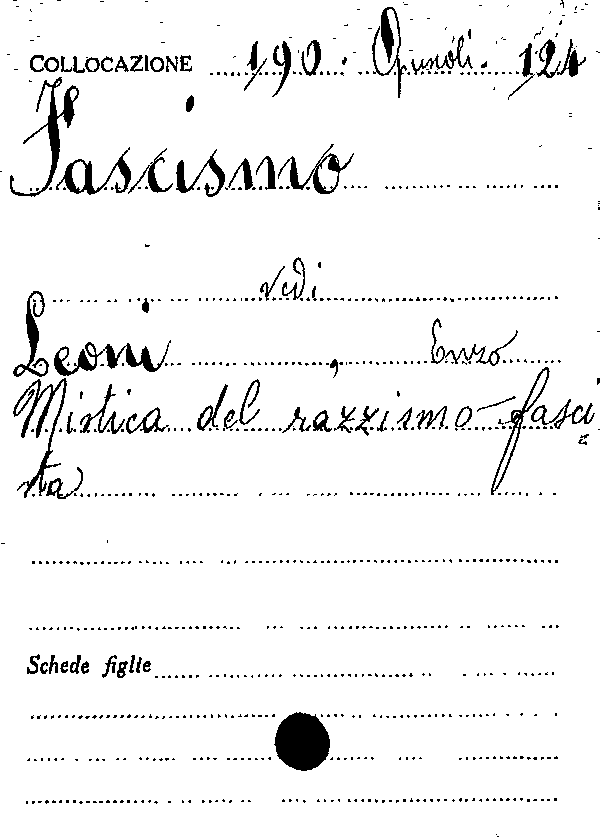 COLLOCAZIONE 190. Opuscoli. 124
Fascismo
vedi
Leoni, Enzo
Mistica del razzismo fasci
sta
Schede figlie